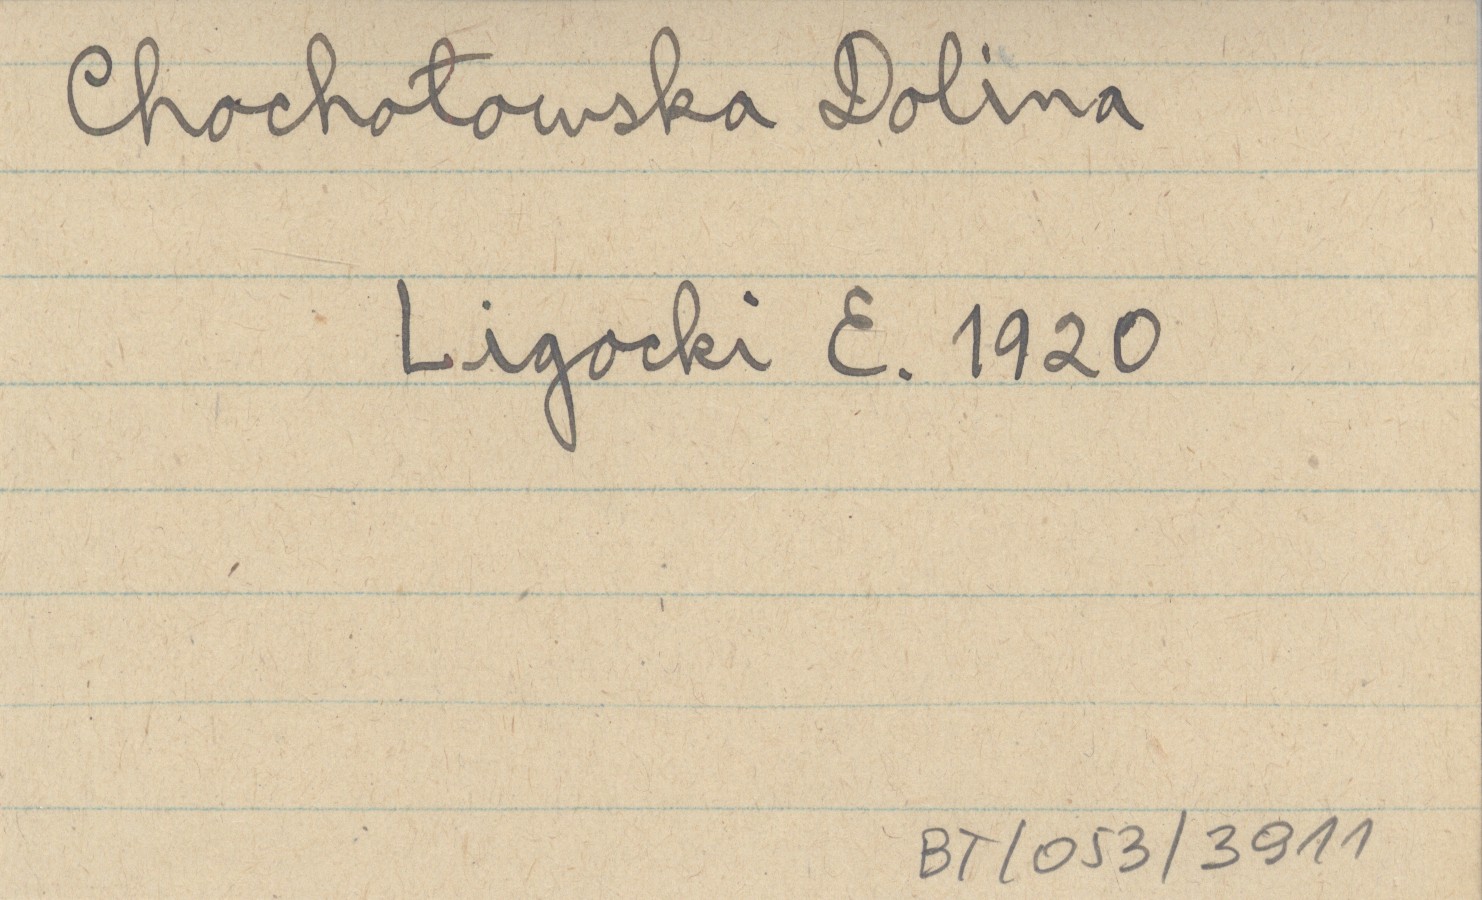 Chochołowska Dolina
Ligocki E. 1920
BT/053/3911